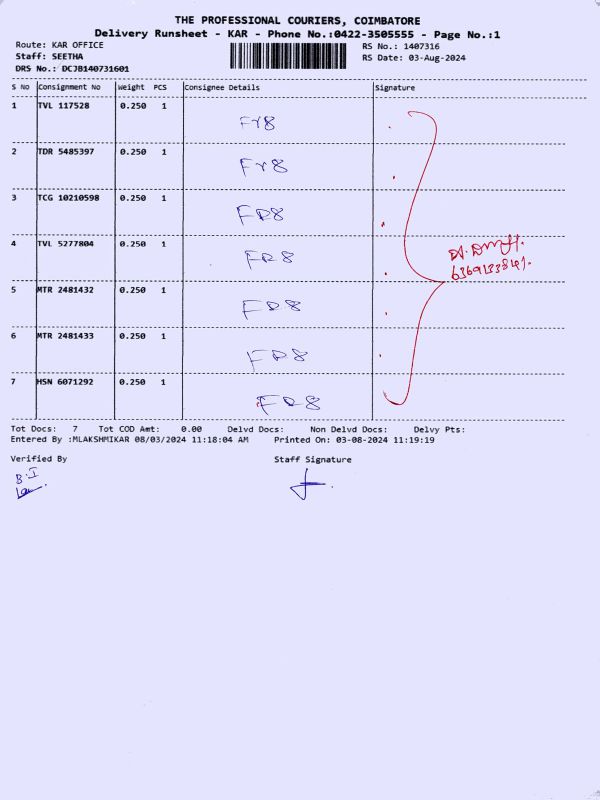 THE PROFESSIONAL COURIERS, COIMBATORE
Delivery Runsheet - KAR - Phone No.:0422-3505555 - Page No.:1
Route: KAR OFFICE RS No.: 1407316
Staff: SEETHA RS Date: 03-Aug-2024
DRS No.: DCJB140731601
S No Consignment No Weight PCS Consignee Details Signature
1 TVL 117528 0.250 1
FY8
2 TDR 5485397 0.250 1
FY8
3 TCG 10210598 0.250 1
FR8
4 TVL 5277804 0.250 1
FR8
5 MTR 2481432 0.250 1
FR8
6 MTR 2481433 0.250 1
FR8
7 HSN 6071292 0.250 1
FR8
Tot Docs: 7 Tot COD Amt: 0.00 Delvd Docs: Non Delvd Docs: Delvy Pts:
Entered By :MLAKSHMIKAR 08/03/2024 11:18:04 AM Printed On: 03-08-2024 11:19:19
Verified By Staff Signature
B.I